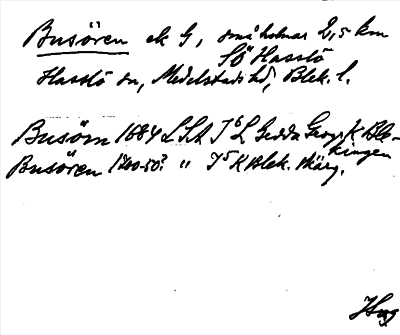 Busören ek G, små holmar 2,5 km
SÖ Hasslö
Hasslö sn, Medelstads hd, Blek. l.
Busörn 1684 LSA J6 L Gedda Geogr K Ble-
kingen
Busören 1700-50? " J5 K Blek. Skärg.